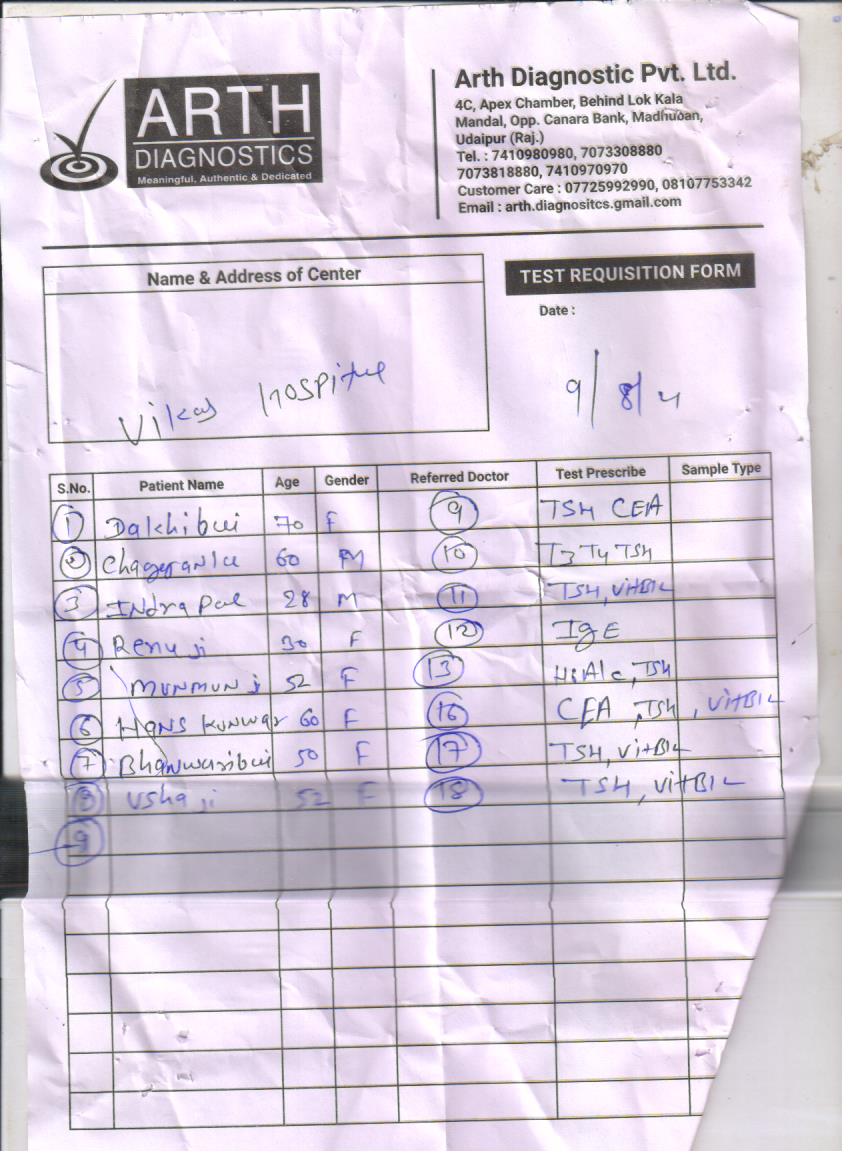 ARTH
DIAGNOSTICS
Meaningful, Authentic & Dedicated
Arth Diagnostic Pvt. Ltd.
4C, Apex Chamber, Behind Lok Kala
Mandal, Opp. Canara Bank, Madhuban,
Udaipur (Raj.)
Tel. : 7410980980, 7073308880
7073818880, 7410970970
Customer Care : 07725992990, 08107753342
Email : arth.diagnositcs.gmail.com
Name & Address of Center
Vikas Hospital
TEST REQUISITION FORM
Date :
9/8/21
S.No. Patient Name Age Gender Referred Doctor Test Prescribe Sample Type
1 Dakhibui 70 F 9 TSH CEA
2 60 M 10 T3 T4 TSH
3 Indra Pal 28 M 11 TSH, VitB12
4 Renu ji 30 F 12 IgE
5 MUNMUN ji 52 F 13 HbA1c, TSH
6 HANS KUNWAR 60 F 16 CEA, TSH, VitB12
7 Bhanwaribui 50 F 17 TSH, VitB12
8 Usha ji 52 F 18 TSH, VitB12
9